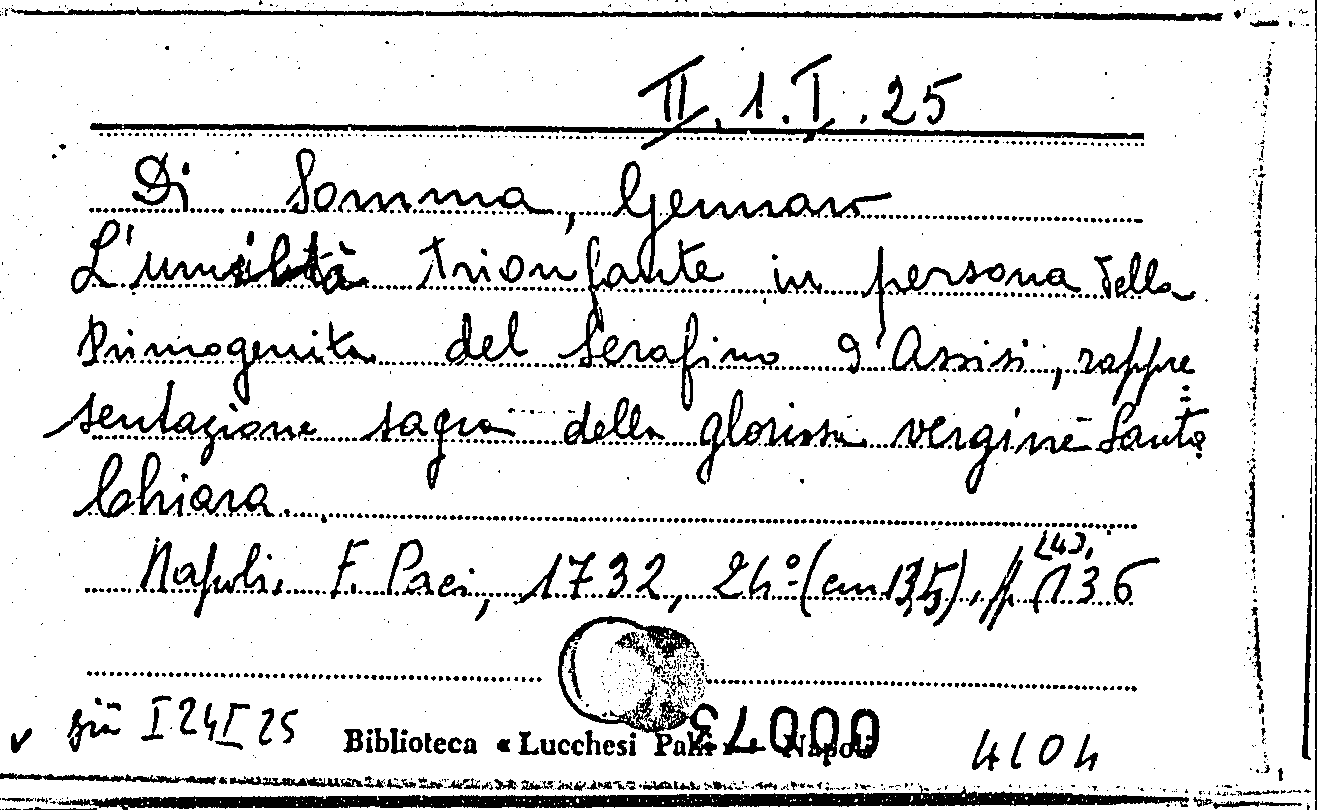 II.1.I.25
Di Somma, Gennaro
L'umiltà trionfante in persona della
Primogenita del Serafino d'Assisi, rappre
sentazione sagra della gloriosa vergine Santa
Chiara.
Napoli, F. Paci, 1732, 24º (cm 13,5), pp. (4), 136
già I 24 I 25
Biblioteca « Lucchesi Palli » - Napoli
4104